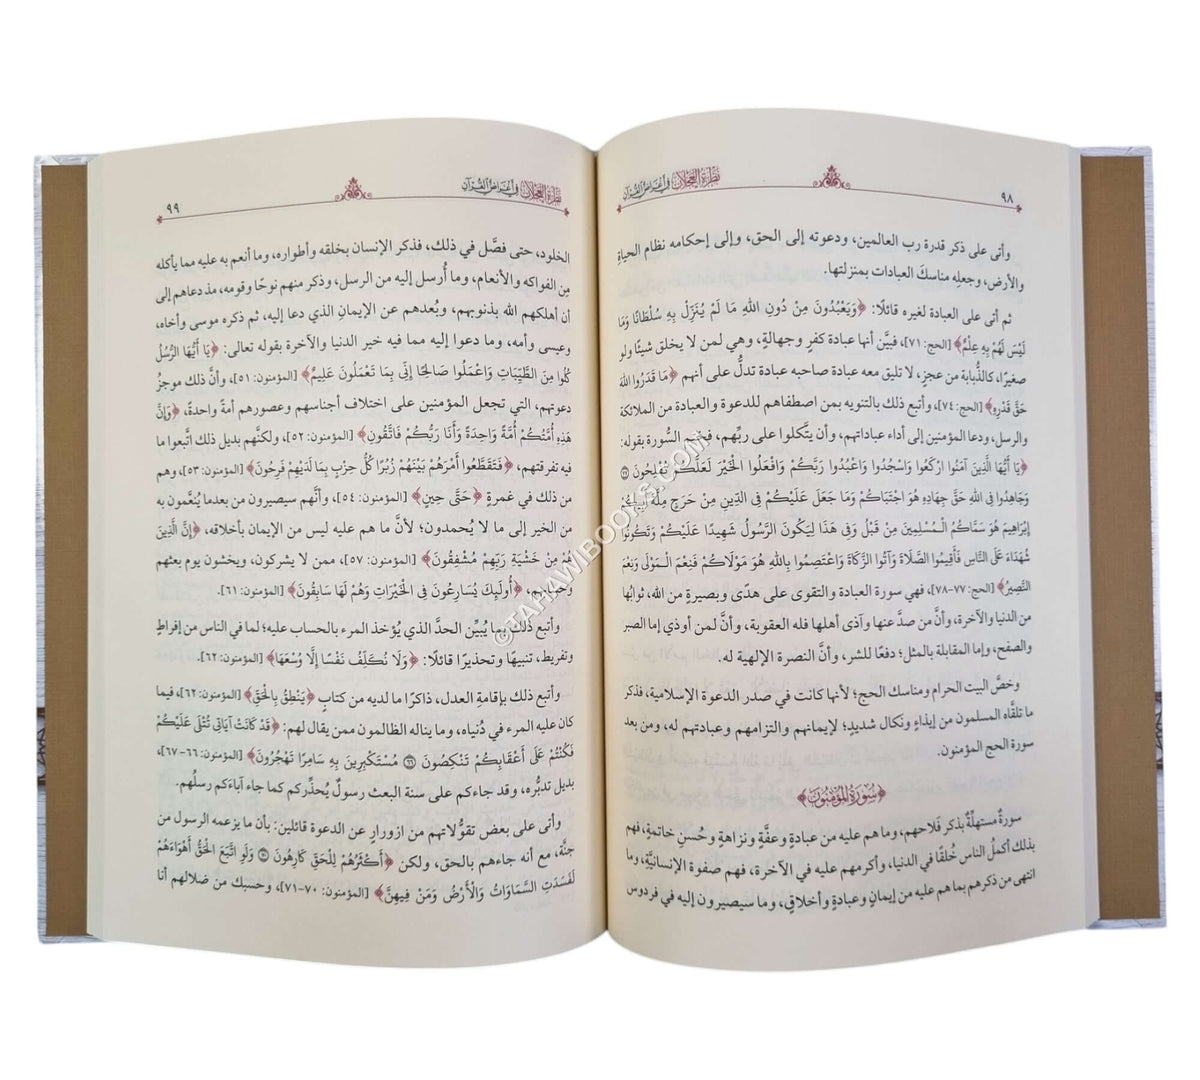 نظرة العجلان في أغراض القرآن
٩٨
وأتى على ذكر قدرة رب العالمين، ودعوته إلى الحق، وإلى إحكامه نظام الحياةِ
والأرض، وجعلِه مناسكَ العبادات بمنزلتها.
ثم أتى على العبادة لغيره قائلًا: ﴿وَيَعْبُدُونَ مِنْ دُونِ اللَّهِ مَا لَمْ يُنَزِّلْ بِهِ سُلْطَانًا وَمَا
لَيْسَ لَهُمْ بِهِ عِلْمٌ﴾ [الحج: ٧١]، فبيَّن أنها عبادة كفرٍ وجهالةٍ، وهي لمن لا يخلق شيئًا ولو
صغيرًا، كالذُّبابة من عجزٍ، لا تليق معه عبادة صاحبه عبادة تدلُّ على أنهم ﴿مَا قَدَرُوا اللَّهَ
حَقَّ قَدْرِهِ﴾ [الحج: ٧٤]، وأتبع ذلك بالتنويه بمن اصطفاهم للدعوة والعبادة من الملائكة
والرسل، ودعا المؤمنين إلى أداء عباداتهم، وأن يتَّكلوا على ربِّهم، فختم السُّورة بقوله:
﴿يَا أَيُّهَا الَّذِينَ آمَنُوا ارْكَعُوا وَاسْجُدُوا وَاعْبُدُوا رَبَّكُمْ وَافْعَلُوا الْخَيْرَ لَعَلَّكُمْ تُفْلِحُونَ ٧٧
وَجَاهِدُوا فِي اللَّهِ حَقَّ جِهَادِهِ هُوَ اجْتَبَاكُمْ وَمَا جَعَلَ عَلَيْكُمْ فِي الدِّينِ مِنْ حَرَجٍ مِلَّةَ أَبِيكُمْ
إِبْرَاهِيمَ هُوَ سَمَّاكُمُ الْمُسْلِمِينَ مِنْ قَبْلُ وَفِي هَذَا لِيَكُونَ الرَّسُولُ شَهِيدًا عَلَيْكُمْ وَتَكُونُوا
شُهَدَاءَ عَلَى النَّاسِ فَأَقِيمُوا الصَّلَاةَ وَآتُوا الزَّكَاةَ وَاعْتَصِمُوا بِاللَّهِ هُوَ مَوْلَاكُمْ فَنِعْمَ الْمَوْلَى وَنِعْمَ
النَّصِيرُ﴾ [الحج: ٧٧-٧٨]، فهي سورة العبادة والتقوى على هدًى وبصيرةٍ من الله، ثوابُها
من الدنيا والآخرة، وأنَّ من صدَّ عنها وآذى أهلها فله العقوبة، وأنَّ لمن أوذي إما الصبر
والصفح، وإما المقابلة بالمثل؛ دفعًا للشر، وأنَّ النصرة الإلهية له.
وخصَّ البيت الحرام ومناسك الحج؛ لأنها كانت في صدر الدعوة الإسلامية، فذكر
ما تلقَّاه المسلمون من إيذاءٍ ونكال شديدٍ؛ لإيمانهم والتزامهم وعبادتهم له، ومن بعد
سورة الحج المؤمنون.
﴿سُورَةُ المُؤْمِنُونَ﴾
سورةٌ مستهلَّةٌ بذكر فَلاحهم، وما هم عليه من عبادةٍ وعفَّةٍ ونزاهةٍ وحُسنِ خاتمةٍ، فهم
بذلك أكملُ الناس خُلقًا في الدنيا، وأكرمهم عليه في الآخرة، فهم صفوة الإنسانيَّة، وما
انتهى من ذكرهم بما هم عليه من إيمانٍ وعبادةٍ وأخلاقٍ، وما سيصيرون إليه في فردوس
نظرة العجلان في أغراض القرآن
٩٩
الخلود، حتى فصَّل في ذلك، فذكر الإنسان بخلقه وأطواره، وما أنعم به عليه مما يأكله
مِن الفواكه والأنعام، وما أُرسل إليه من الرسل، وذكر منهم نوحًا وقومه، مذ دعاهم إلى
أن أهلكهم الله بذنوبهم، وبُعدهم عن الإيمانِ الذي دعا إليه، ثم ذكره موسى وأخاه،
وعيسى وأمه، وما دعوا إليه مما فيه خير الدنيا والآخرة بقوله تعالى: ﴿يَا أَيُّهَا الرُّسُلُ
كُلُوا مِنَ الطَّيِّبَاتِ وَاعْمَلُوا صَالِحًا إِنِّي بِمَا تَعْمَلُونَ عَلِيمٌ﴾ [المؤمنون: ٥١]، وأنَّ ذلك موجزُ
دعوتهم، التي تجعل المؤمنين على اختلاف أجناسهم وعصورهم أمةً واحدةً، ﴿وَإِنَّ
هَذِهِ أُمَّتُكُمْ أُمَّةً وَاحِدَةً وَأَنَا رَبُّكُمْ فَاتَّقُونِ﴾ [المؤمنون: ٥٢]، ولكنَّهم بديل ذلك اتَّبعوا ما
فيه تفرقتهم، ﴿فَتَقَطَّعُوا أَمْرَهُمْ بَيْنَهُمْ زُبُرًا كُلُّ حِزْبٍ بِمَا لَدَيْهِمْ فَرِحُونَ﴾ [المؤمنون: ٥٣]، وهم
من ذلك في غمرةٍ ﴿حَتَّى حِينٍ﴾ [المؤمنون: ٥٤]، وأنَّهم سيصيرون من بعدما يُنعَّمون به
من الخير إلى ما لا يُحمدون؛ لأنَّ ما هم عليه ليس من الإيمان بأخلاقه، ﴿إِنَّ الَّذِينَ
هُمْ مِنْ خَشْيَةِ رَبِّهِمْ مُشْفِقُونَ﴾ [المؤمنون: ٥٧]، ممن لا يشركون، ويخشون يوم بعثهم
وحسابهم، ﴿أُولَئِكَ يُسَارِعُونَ فِي الْخَيْرَاتِ وَهُمْ لَهَا سَابِقُونَ﴾ [المؤمنون: ٦١].
وأتبع ذلك بما يُبيِّن الحدَّ الذي يُؤخذ المرء بالحساب عليه؛ لما في الناس من إفراطٍ
وتفريط، تنبيهًا وتحذيرًا قائلًا: ﴿وَلَا نُكَلِّفُ نَفْسًا إِلَّا وُسْعَهَا﴾ [المؤمنون: ٦٢].
وأتبع ذلك بإقامةِ العدل، ذاكرًا ما لديه من كتابٍ ﴿يَنْطِقُ بِالْحَقِّ﴾ [المؤمنون: ٦٢]، فيما
كان عليه المرء في دُنياه، وما يناله الظالمون ممن يقال لهم: ﴿قَدْ كَانَتْ آيَاتِي تُتْلَى عَلَيْكُمْ
فَكُنْتُمْ عَلَى أَعْقَابِكُمْ تَنْكِصُونَ ٦٦ مُسْتَكْبِرِينَ بِهِ سَامِرًا تَهْجُرُونَ﴾ [المؤمنون: ٦٦-٦٧]،
بديل تدبُّره، وقد جاءكم على سنة البعث رسولٌ يُحذِّركم كما جاء آباءَكم رسلُهم.
وأتى على بعض تقوُّلاتهم من ازورارٍ عن الدعوة قائلين: بأن ما يزعمه الرسول من
جنَّة، مع أنه جاءهم بالحق، ولكن ﴿أَكْثَرُهُمْ لِلْحَقِّ كَارِهُونَ ٧٠ وَلَوِ اتَّبَعَ الْحَقُّ أَهْوَاءَهُمْ
لَفَسَدَتِ السَّمَاوَاتُ وَالْأَرْضُ وَمَنْ فِيهِنَّ﴾ [المؤمنون: ٧٠-٧١]، وحسبك من ضلالهم أنا
©TAHAWIBOOKS.COM